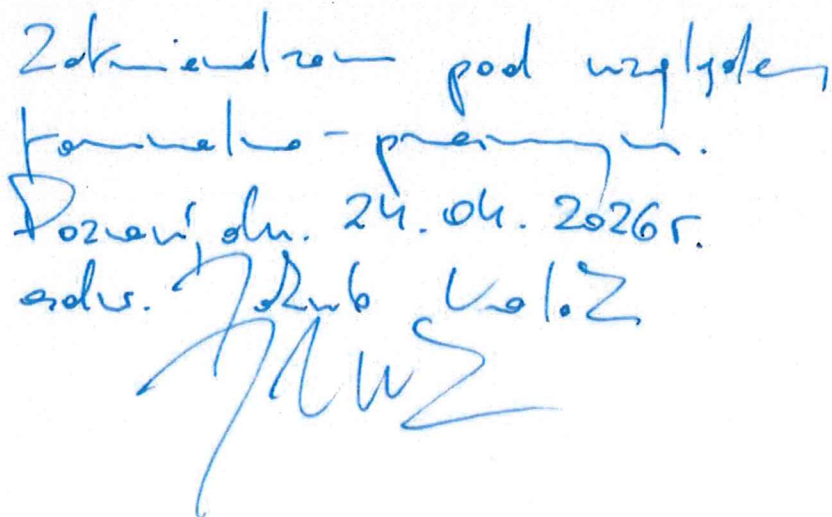 Zatwierdzam pod względem
formalno-prawnym.
Poznań, dn. 24.04.2026r.
adw. Jakub